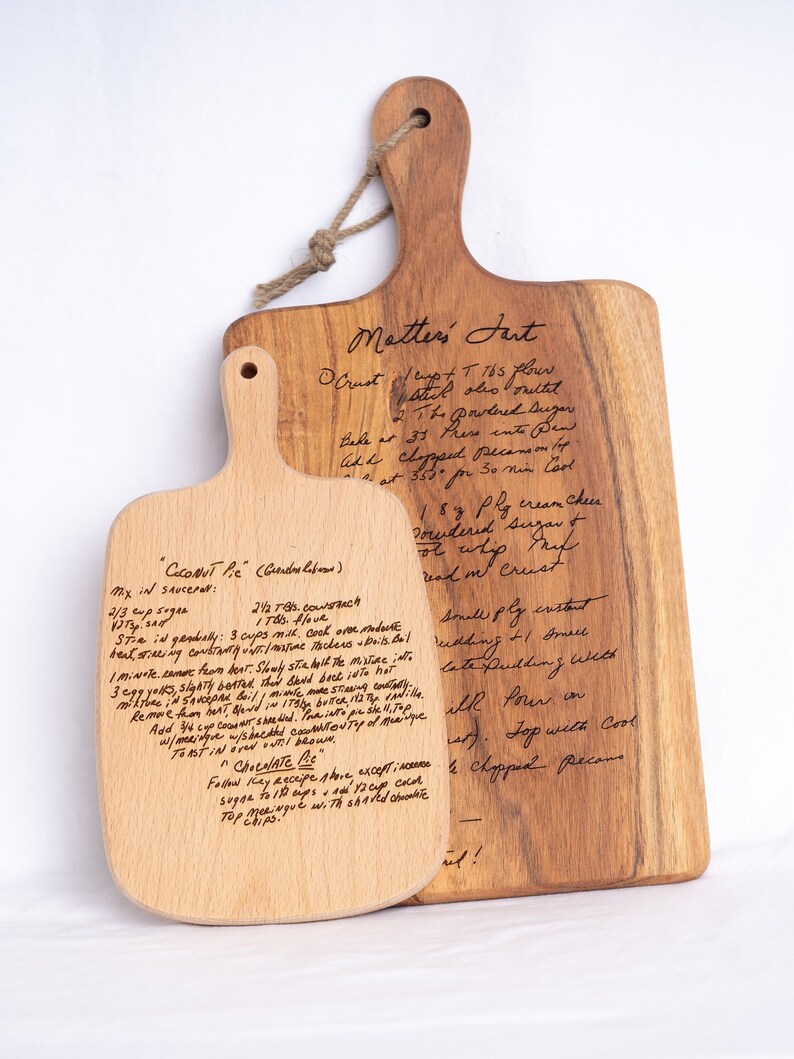 Matter's Tart
Crust: 1 cup + 1 Tbs flour
1 stick oleo melted
2 Tbs Powdered Sugar
Bake at 35 Press into Pan
Add chopped pecans on top
at 350° for 30 min Cool
1 8 z pkg cream chees
Powdered Sugar +
ool whip Mix
ead on crust
small pkg instant
udding + 1 small
late Pudding with
ilk Pour on
st). Top with Cool
chopped pecans
!
"Coconut Pie" (Grandma Robinson)
Mix in saucepan:
2/3 cup sugar 2 1/2 TBls. cornstarch
1/2 Tsp. salt 1 TBls. flour
Stir in gradually: 3 cups milk. Cook over moderate
heat, stirring constantly until mixture thickens & boils. Boil
1 minute. remove from heat. Slowly stir half the mixture into
3 egg yolks, slightly beaten. Then Blend back into hot
mixture in saucepan. Boil 1 minute more stirring constantly.
Remove from heat. Blend in 1 TBlsp. butter, 1 1/2 Tsp. vanilla.
Add 3/4 cup coconut shredded. Pour into pie shell, Top
w/meringue w/shredded coconut on Top of Meringue
Toast in oven until brown.
"Chocolate Pie"
Follow Key Receipe Above except increase
sugar to 1 1/2 cups + add 1/2 cup cocoa
Top meringue with shaved chocolate
chips.